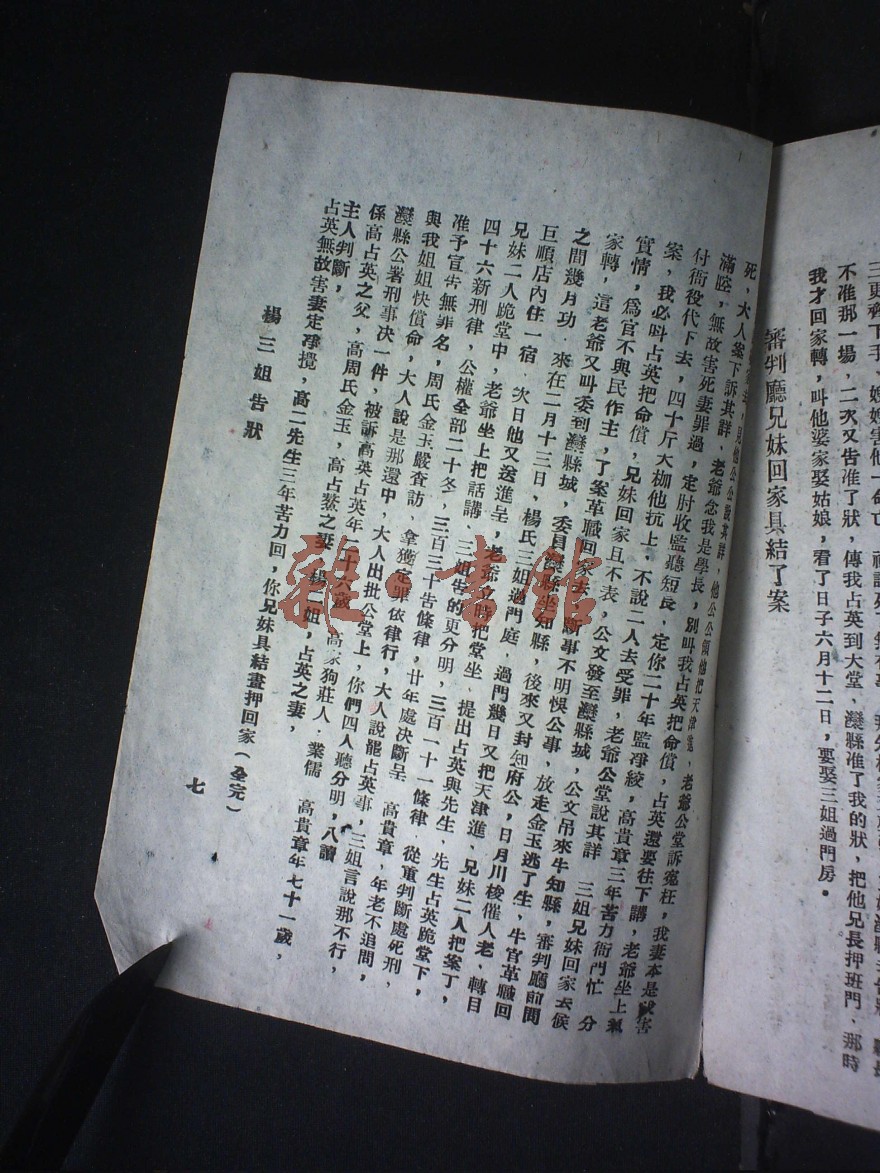 三更齊下手
不准那一場，二次又告准了狀，傳我占英到大堂、灤縣准了我的狀，把他兄長押班門、那時
我才回家轉，叫他婆家娶姑娘，看了日子六月十二日，要娶三姐過門房。
審判廳兄妹回家具結了案
死，大人案下訴其詳、老爺念我是學長，別叫我占英把命償，占英還要往下講，老爺坐上氣
滿腔，無故害死妻罪過，定肘收監聽短長、定你二十年監凈絞，高貴章三年苦力衙門忙　分
付衙役代下去，四十斤大枷他扛上，不說二人去受罪，老爺公堂說其詳　三姐兄妹回家去候
案，我必叫占英把命償，兄妹回家且不表，公文發至灤縣城，公文吊來牛知縣，審判廳前問
實情，為官不與民作主，了案革職回家去，斷事不明悞公事，放走金玉逃了生，牛官革職回
家轉，這老爺又叫委到灤縣城，委員灤縣坐知縣，後來又封知府公，日月川梭催人老、轉目
之間幾月功．來在二月十三日，楊氏三姐過門庭　過門幾日又把天津進、兄妹二人把案了，
巨順店內住一宿．次日他又送進呈，老爺立時把堂坐、提出占英與先生、先生占英跪堂下，
兄妹二人跪堂中，老爺坐上把話講、三姐告的更分明，三百一十一條律、從重判斷處死刑、
四十六新刑律，公權全部二十冬，三百三十告條律，廿年處決斷呈　高貴章，年老不追問，
准予宣告無罪名，周氏金玉嚴查訪、拿獲定罪依律行，大人說罷占英事，三姐言說那不行，
與我姐姐快償命，大人說是那還中，大人出批公堂上，你們四人聽分明，八讀
灤縣公署刑事決一件，被訴高英占英年二十六歲，高家狗莊人．業儒　高貴章年七十一歲，
係高占英之父，高周氏金玉，高占鰲之妻　楊二姐，占英之妻，
主人判斷，
占英無故害妻定凈攪，高二先生三年苦力回，你兄妹具結畫押回家（全完）
楊三姐告狀
七
雜·書館